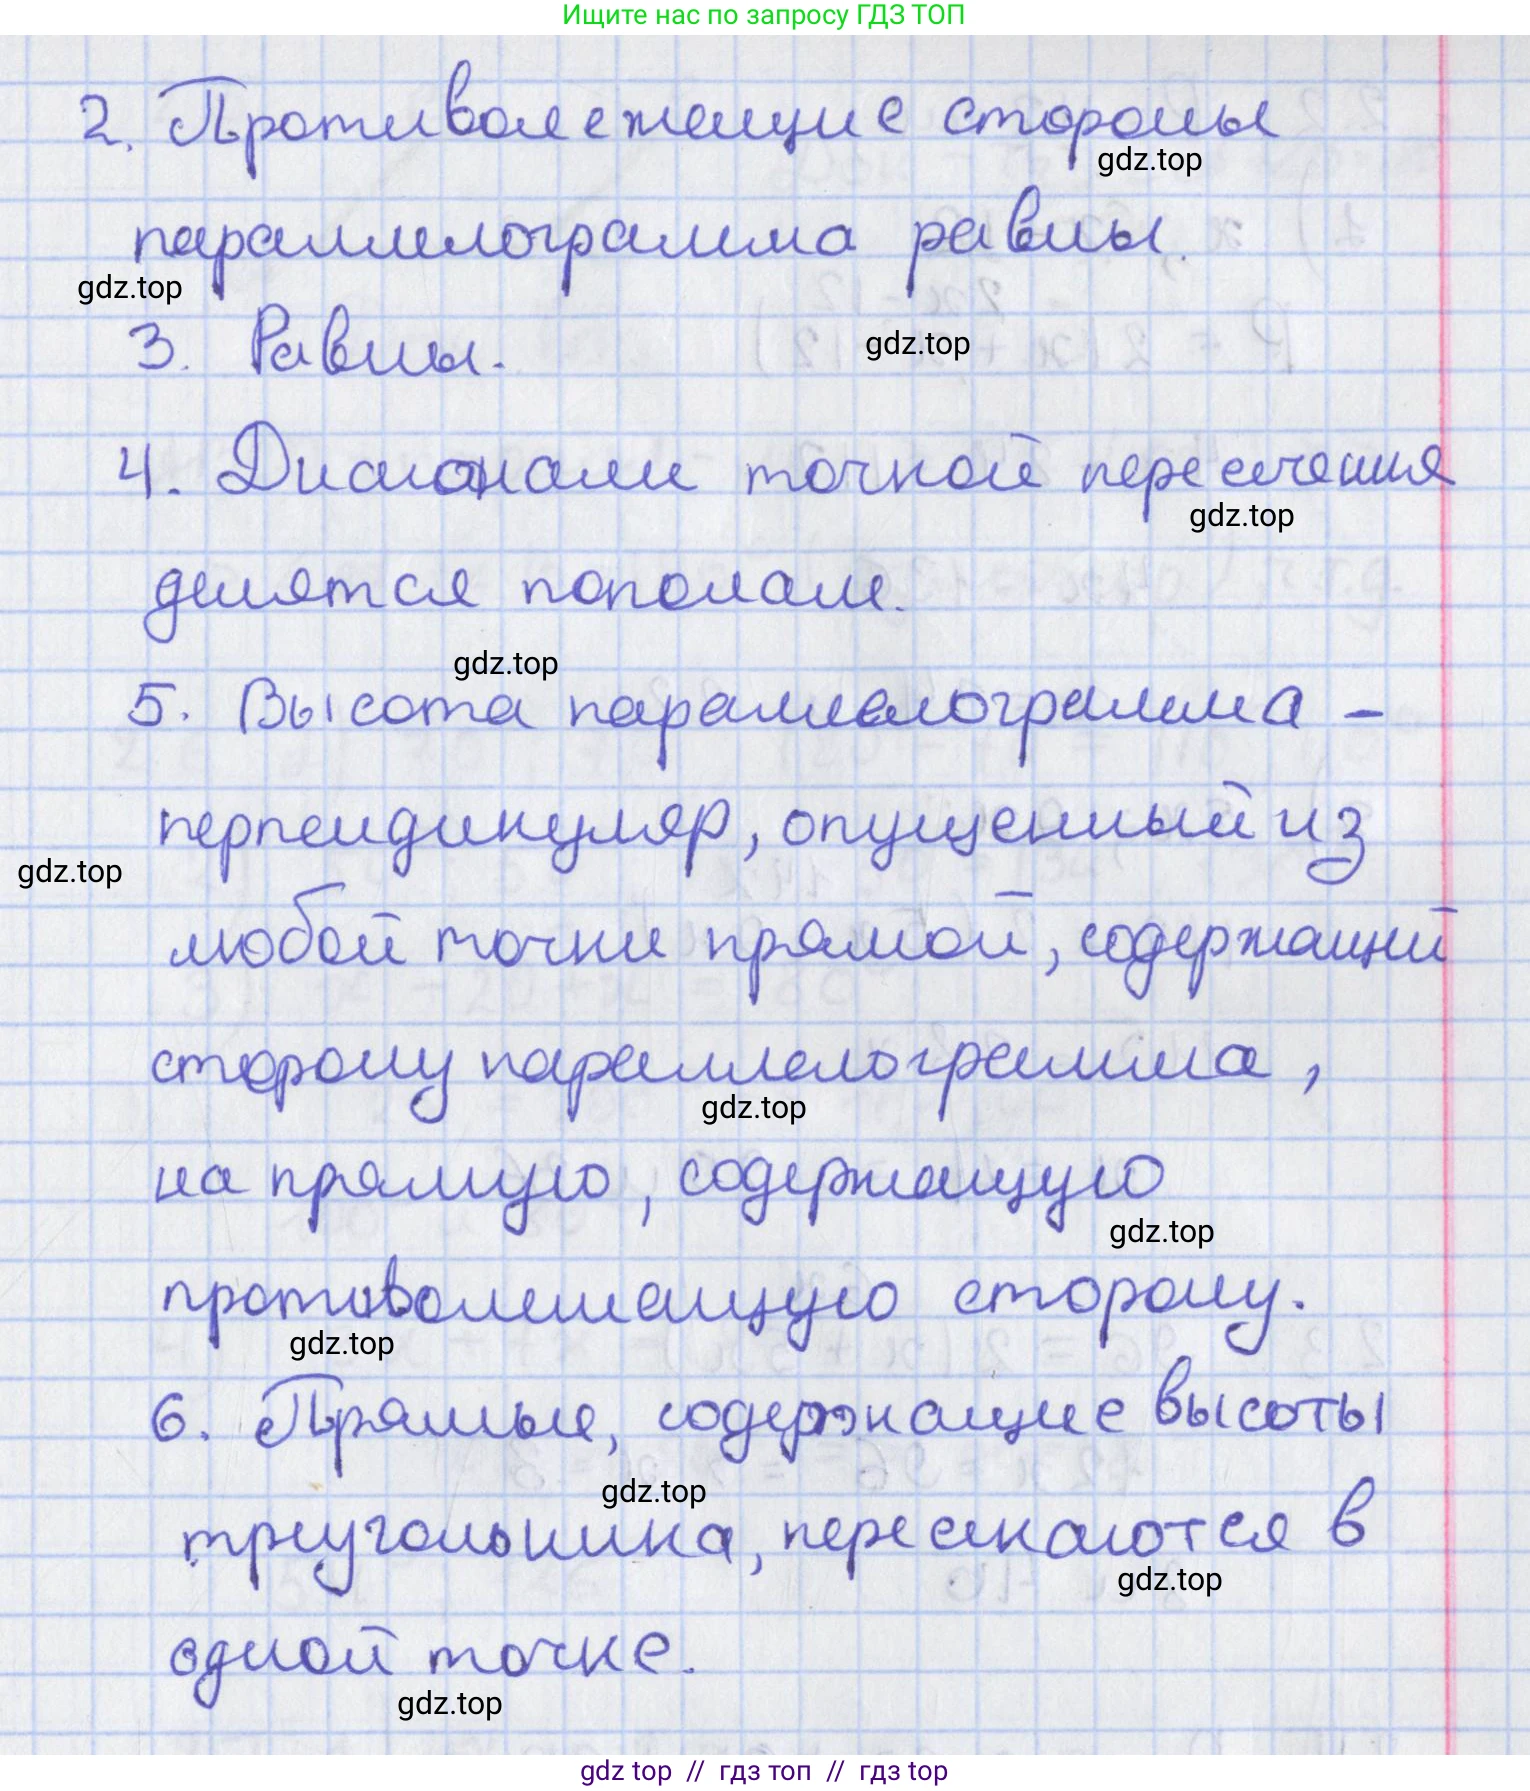 Ищите нас по запросу ГДЗ ТОП
2. Противолежащие стороны
gdz.top
параллелограмма равны.
gdz.top
3. Равны.
gdz.top
4. Диагонали точкой пересечения
gdz.top
делятся пополам.
gdz.top
5. Высота параллелограмма –
перпендикуляр, опущенный из
gdz.top
любой точки прямой, содержащий
сторону параллелограмма,
gdz.top
на прямую, содержащую
gdz.top
противолежащую сторону.
gdz.top
6. Прямые, содержащие высоты
gdz.top
треугольника, пересекаются в
gdz.top
одной точке.
gdz.top
gdz top // гдз топ // гдз top